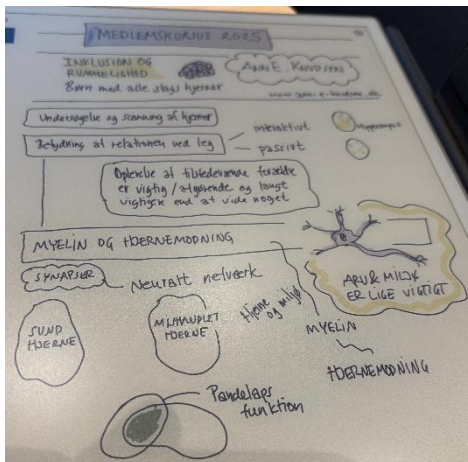 MEDLEMSKURSUS 2025
INKLUSION OG
RUMMELIGHED
Børn med alle slags hjerner
ANN E. KNUDSEN
www.ann-e-knudsen.dk
Undersøgelse og scanning af hjerner
Betydning af relationen ved leg
interaktivt
passivt
Hippocampus
Oplevelse af tilstedeværende forældre
er vigtig / afgørende og langt
vigtigere end at vide noget
MYELIN OG HJERNEMODNING
SYNAPSER
Neuralt netværk
ARV & MILJØ
ER LIGE VIGTIGT
SUND
HJERNE
MISHANDLET
HJERNE
Hjerne
og miljø
MYELIN
HJERNEMODNING
Pandelaps
funktion